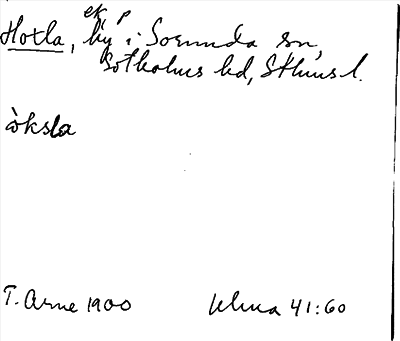 Hoxla, by i Sorunda sn,
Sotholms hd, Sthlms l.
òksla
T. Arne 1900 Ulma 41:60